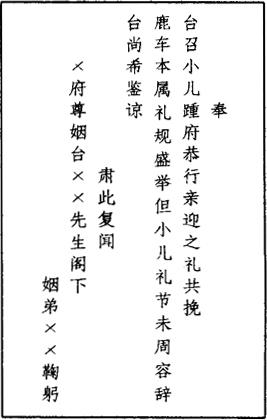 奉
台召小儿踵府恭行亲迎之礼共挽
鹿车本属礼规盛举但小儿礼节未周容辞
台尚希鉴谅
肃此复闻
×府尊姻台××先生阁下
姻弟××鞠躬